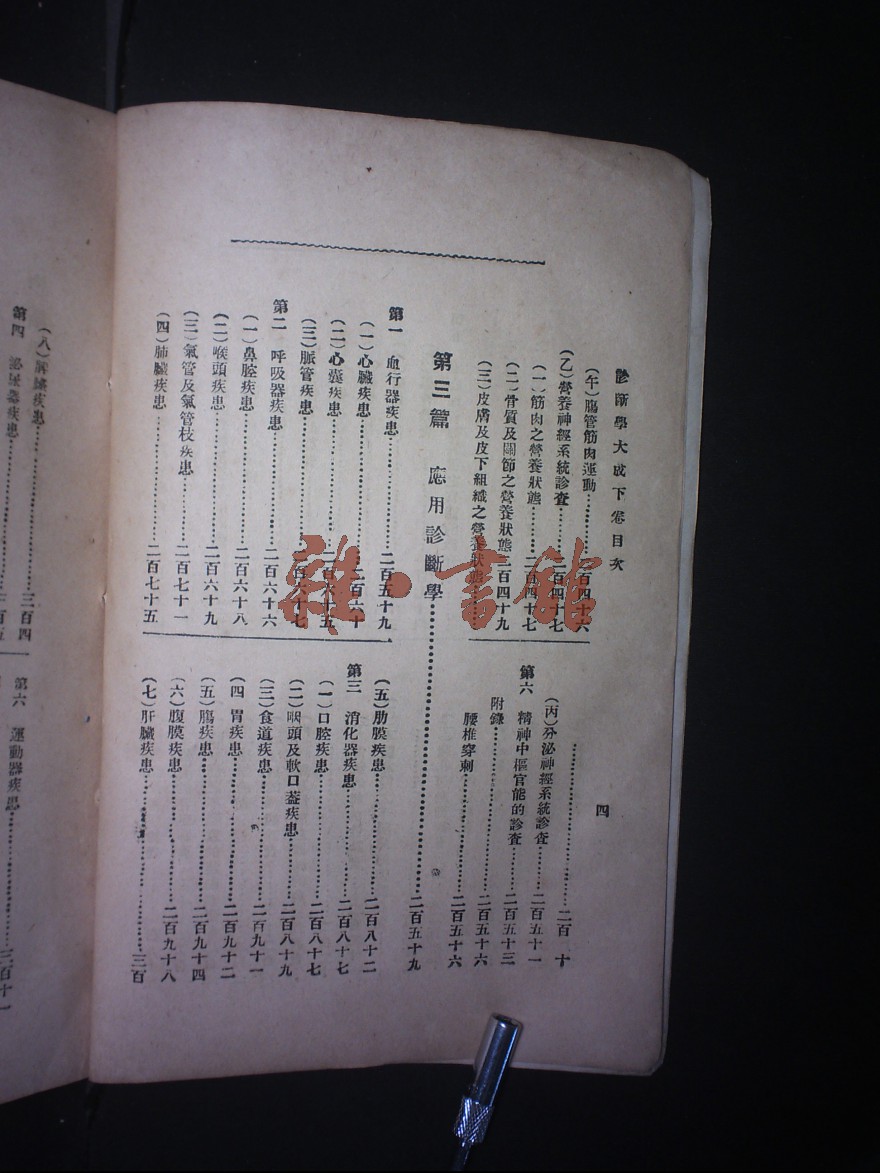 診斷學大成下卷目次
四
(午)腸管筋肉運動……二百四十六
(乙)營養神經系統診查……二百四十七
(一)筋肉之營養狀態……二百四十七
(二)骨質及關節之營養狀態…二百四十九
(三)皮膚及皮下組織之營養狀態……
……二百 十
(丙)分泌神經系統診查……二百五十一
第六 精神中樞官能的診查……二百五十三
附錄
腰椎穿刺……二百五十六
第三篇 應用診斷學……二百五十九
第一 血行器疾患……二百五十九
(一)心臟疾患……二百六十
(二)心囊疾患……二百六十五
(三)脈管疾患……二百六十七
第二 呼吸器疾患……二百六十六
(一)鼻腔疾患……二百六十八
(二)喉頭疾患……二百六十九
(三)氣管及氣管枝疾患……二百七十一
(四)肺臟疾患……二百七十五
(五)肋膜疾患……二百八十二
第三 消化器疾患……二百八十七
(一)口腔疾患……二百八十七
(二)咽頭及軟口蓋疾患……二百八十九
(三)食道疾患……二百九十一
(四)胃疾患……二百九十二
(五)腸疾患……二百九十四
(六)腹膜疾患……二百九十八
(七)肝臟疾患……三百
(八)脾臟疾患……三百四
第四 泌尿器疾患……三百五
第六 運動器疾患……三百十一
雜·書館